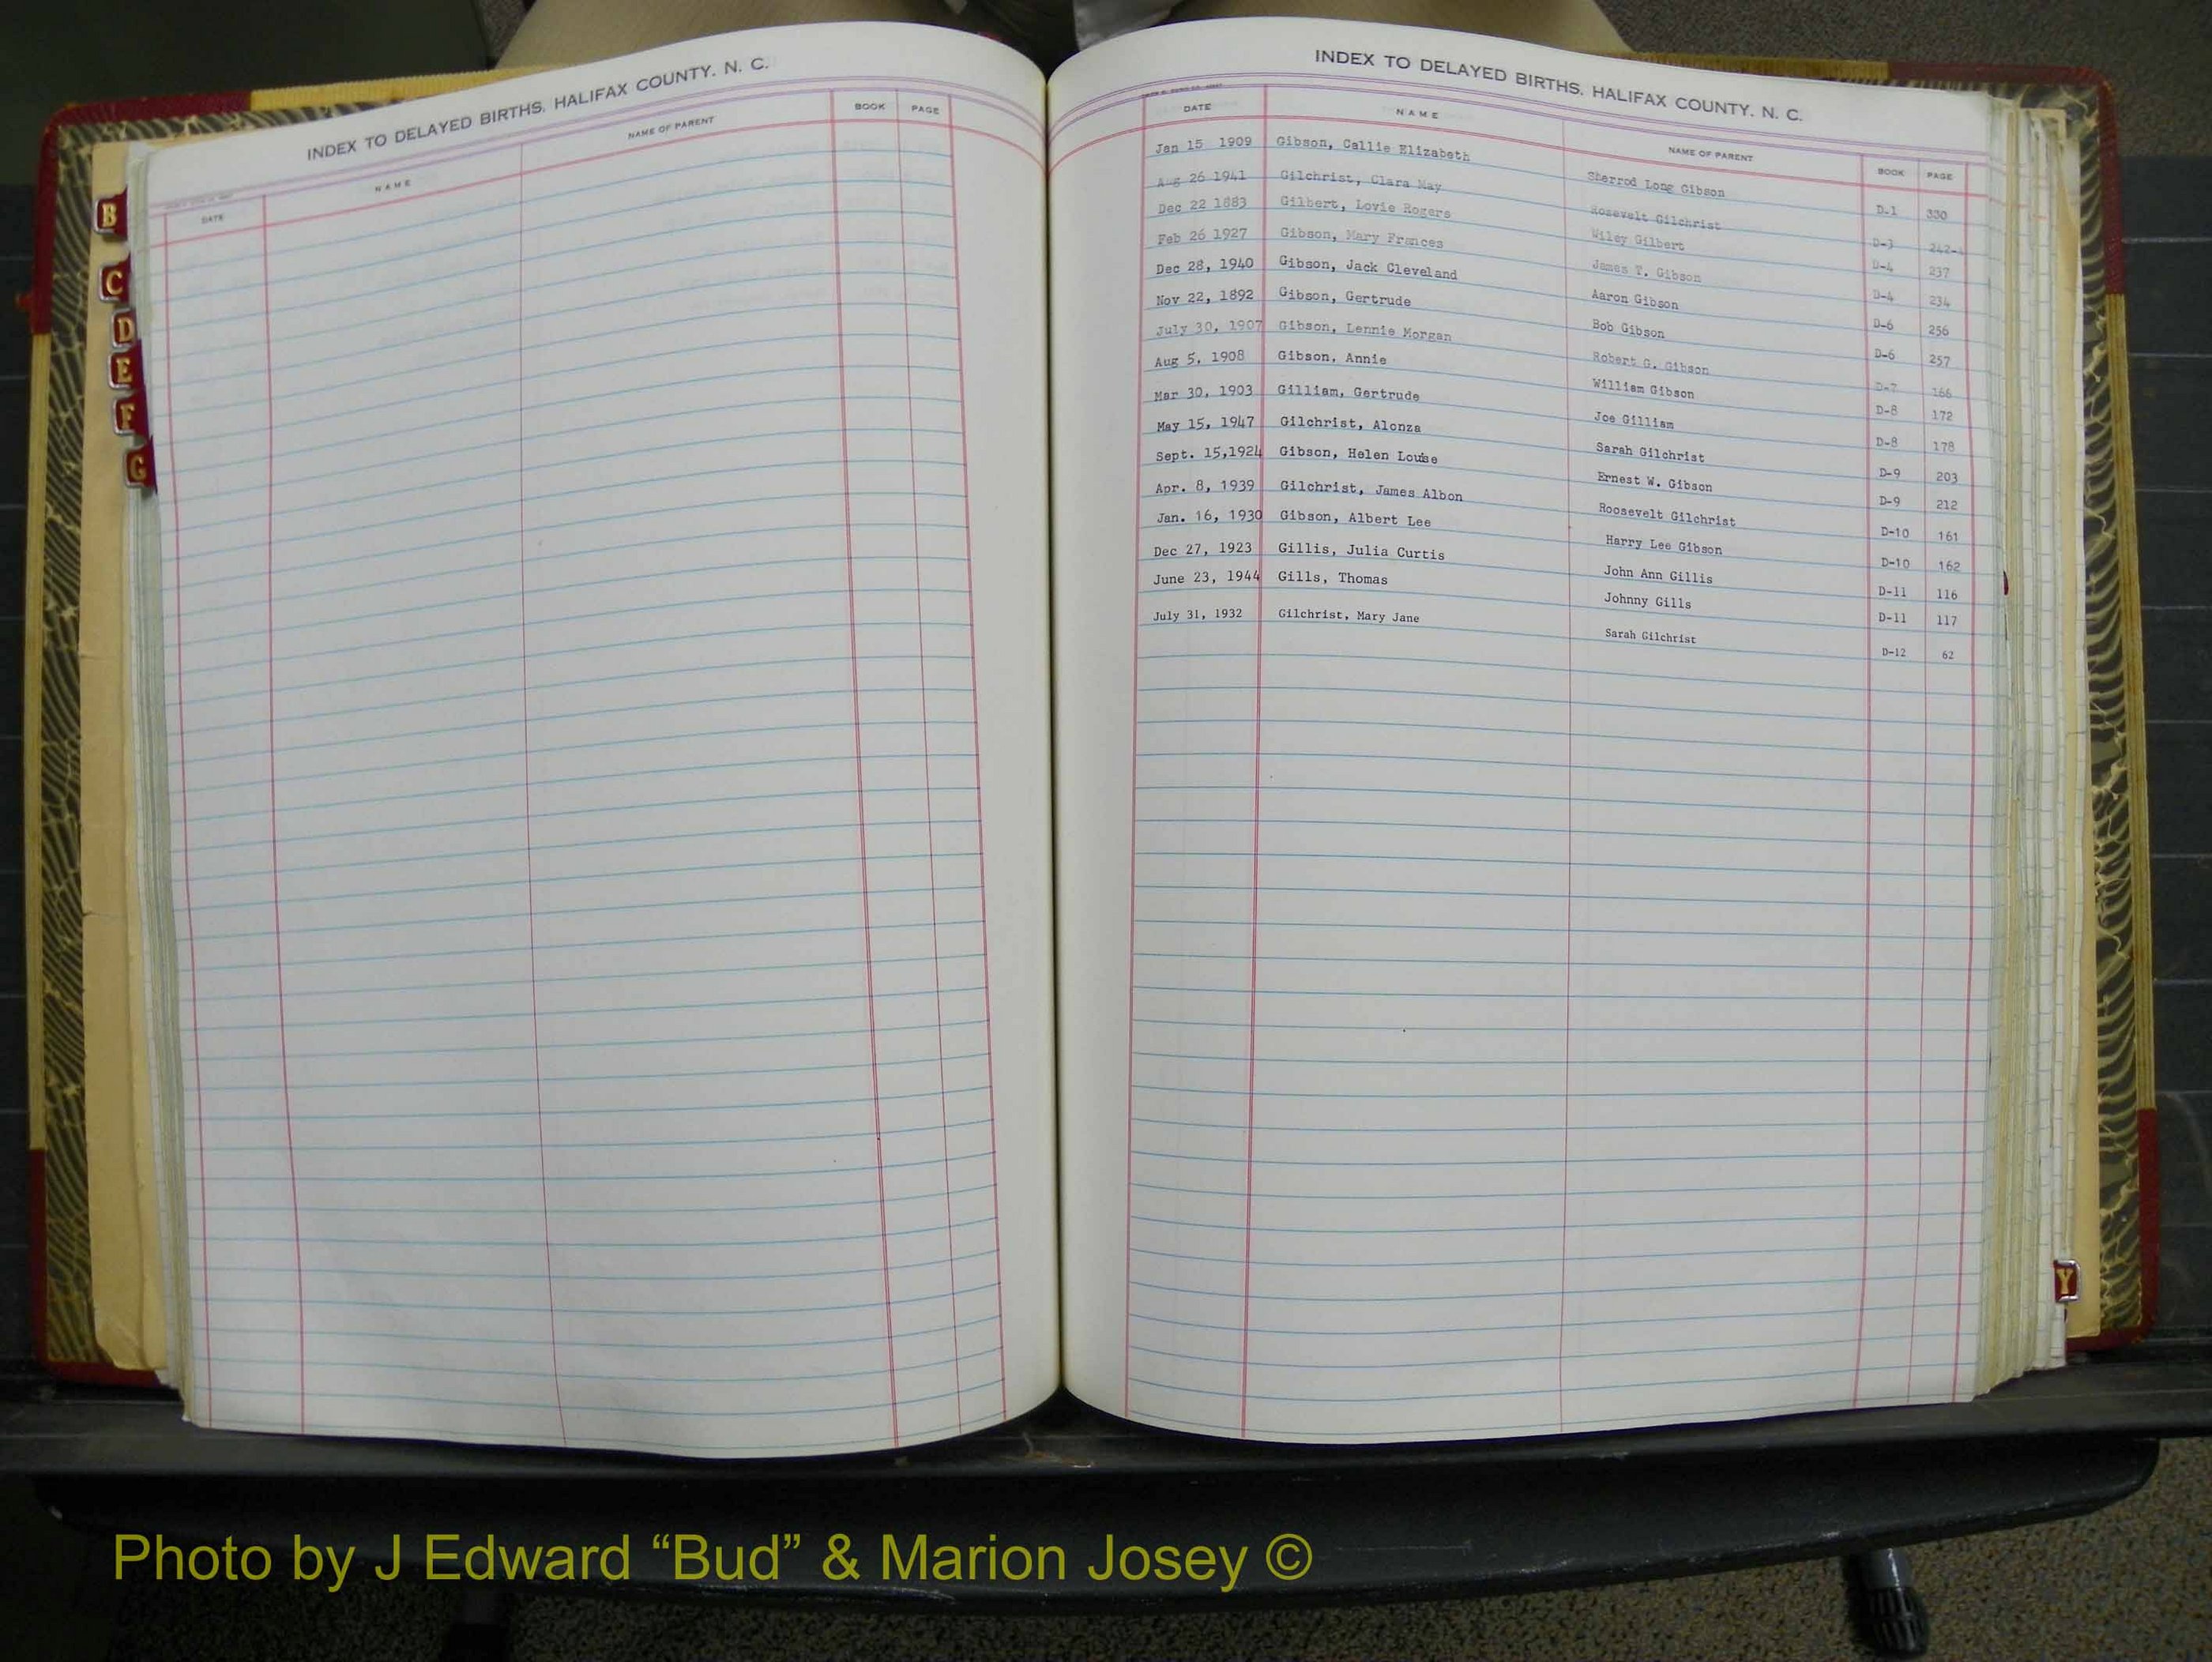 INDEX TO DELAYED BIRTHS. HALIFAX COUNTY. N. C.
DATE NAME NAME OF PARENT BOOK PAGE
B
C
D
E
F
G
INDEX TO DELAYED BIRTHS. HALIFAX COUNTY. N. C.
DATE NAME NAME OF PARENT BOOK PAGE
Jan 15 1909 Gibson, Callie Elizabeth Sherrod Long Gibson D-1 330
Aug 26 1941 Gilchrist, Clara May Rosevelt Gilchrist D-3
Dec 22 1883 Gilbert, Lovie Rogers Wiley Gilbert D-4 237
Feb 26 1927 Gibson, Mary Frances James T. Gibson D-4 234
Dec 28, 1940 Gibson, Jack Cleveland Aaron Gibson D-6 256
Nov 22, 1892 Gibson, Gertrude Bob Gibson D-6 257
July 30, 1907 Gibson, Lennie Morgan Robert G. Gibson D-7 166
Aug 5, 1908 Gibson, Annie William Gibson D-8 172
Mar 30, 1903 Gilliam, Gertrude Joe Gilliam D-8 178
May 15, 1947 Gilchrist, Alonza Sarah Gilchrist D-9 203
Sept. 15,1924 Gibson, Helen Louise Ernest W. Gibson D-9 212
Apr. 8, 1939 Gilchrist, James Albon Roosevelt Gilchrist D-10 161
Jan. 16, 1930 Gibson, Albert Lee Harry Lee Gibson D-10 162
Dec 27, 1923 Gillis, Julia Curtis John Ann Gillis D-11 116
June 23, 1944 Gills, Thomas Johnny Gills D-11 117
July 31, 1932 Gilchrist, Mary Jane Sarah Gilchrist D-12 62
Y
Photo by J Edward “Bud” & Marion Josey ©